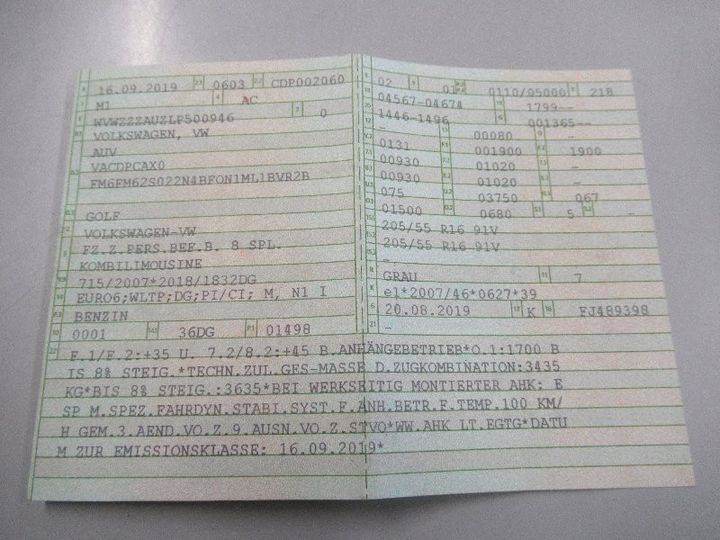 16.09.2019 0603 CDP002060
M1 AC
WVWZZZAUZLP500946 0
VOLKSWAGEN, VW
AUV
VACDPCAX0
FM6FM62S022N4BFON1ML1BVR2B
GOLF
VOLKSWAGEN-VW
FZ.Z.PERS.BEF.B. 8 SPL.
KOMBILIMOUSINE
715/2007*2018/1832DG
EURO6;WLTP;DG;PI/CI; M, N1 I
BENZIN
0001 36DG 01498
02 01 0110/05000 218
04567-04674 1799--
1446-1496 001365--
– 00080 –
0131 001900 1900
00930 01020 –
00930 01020 –
075 03750 067
01500 0680 5 –
205/55 R16 91V
205/55 R16 91V
–
GRAU 7
e1*2007/46*0627*39
20.08.2019 K FJ489398
–
F.1/F.2:+35 U. 7.2/8.2:+45 B.ANHÄNGEBETRIEB*O.1:1700 B
IS 8% STEIG.*TECHN.ZUL.GES-MASSE D.ZUGKOMBINATION:3435
KG*BIS 8% STEIG.:3635*BEI WERKSEITIG MONTIERTER AHK: E
SP M.SPEZ.FAHRDYN.STABI.SYST.F.ANH.BETR.F.TEMP.100 KM/
H GEM.3.AEND.VO.Z.9.AUSN.VO.Z.STVO*WW.AHK LT.EGTG*DATU
M ZUR EMISSIONSKLASSE: 16.09.2019*